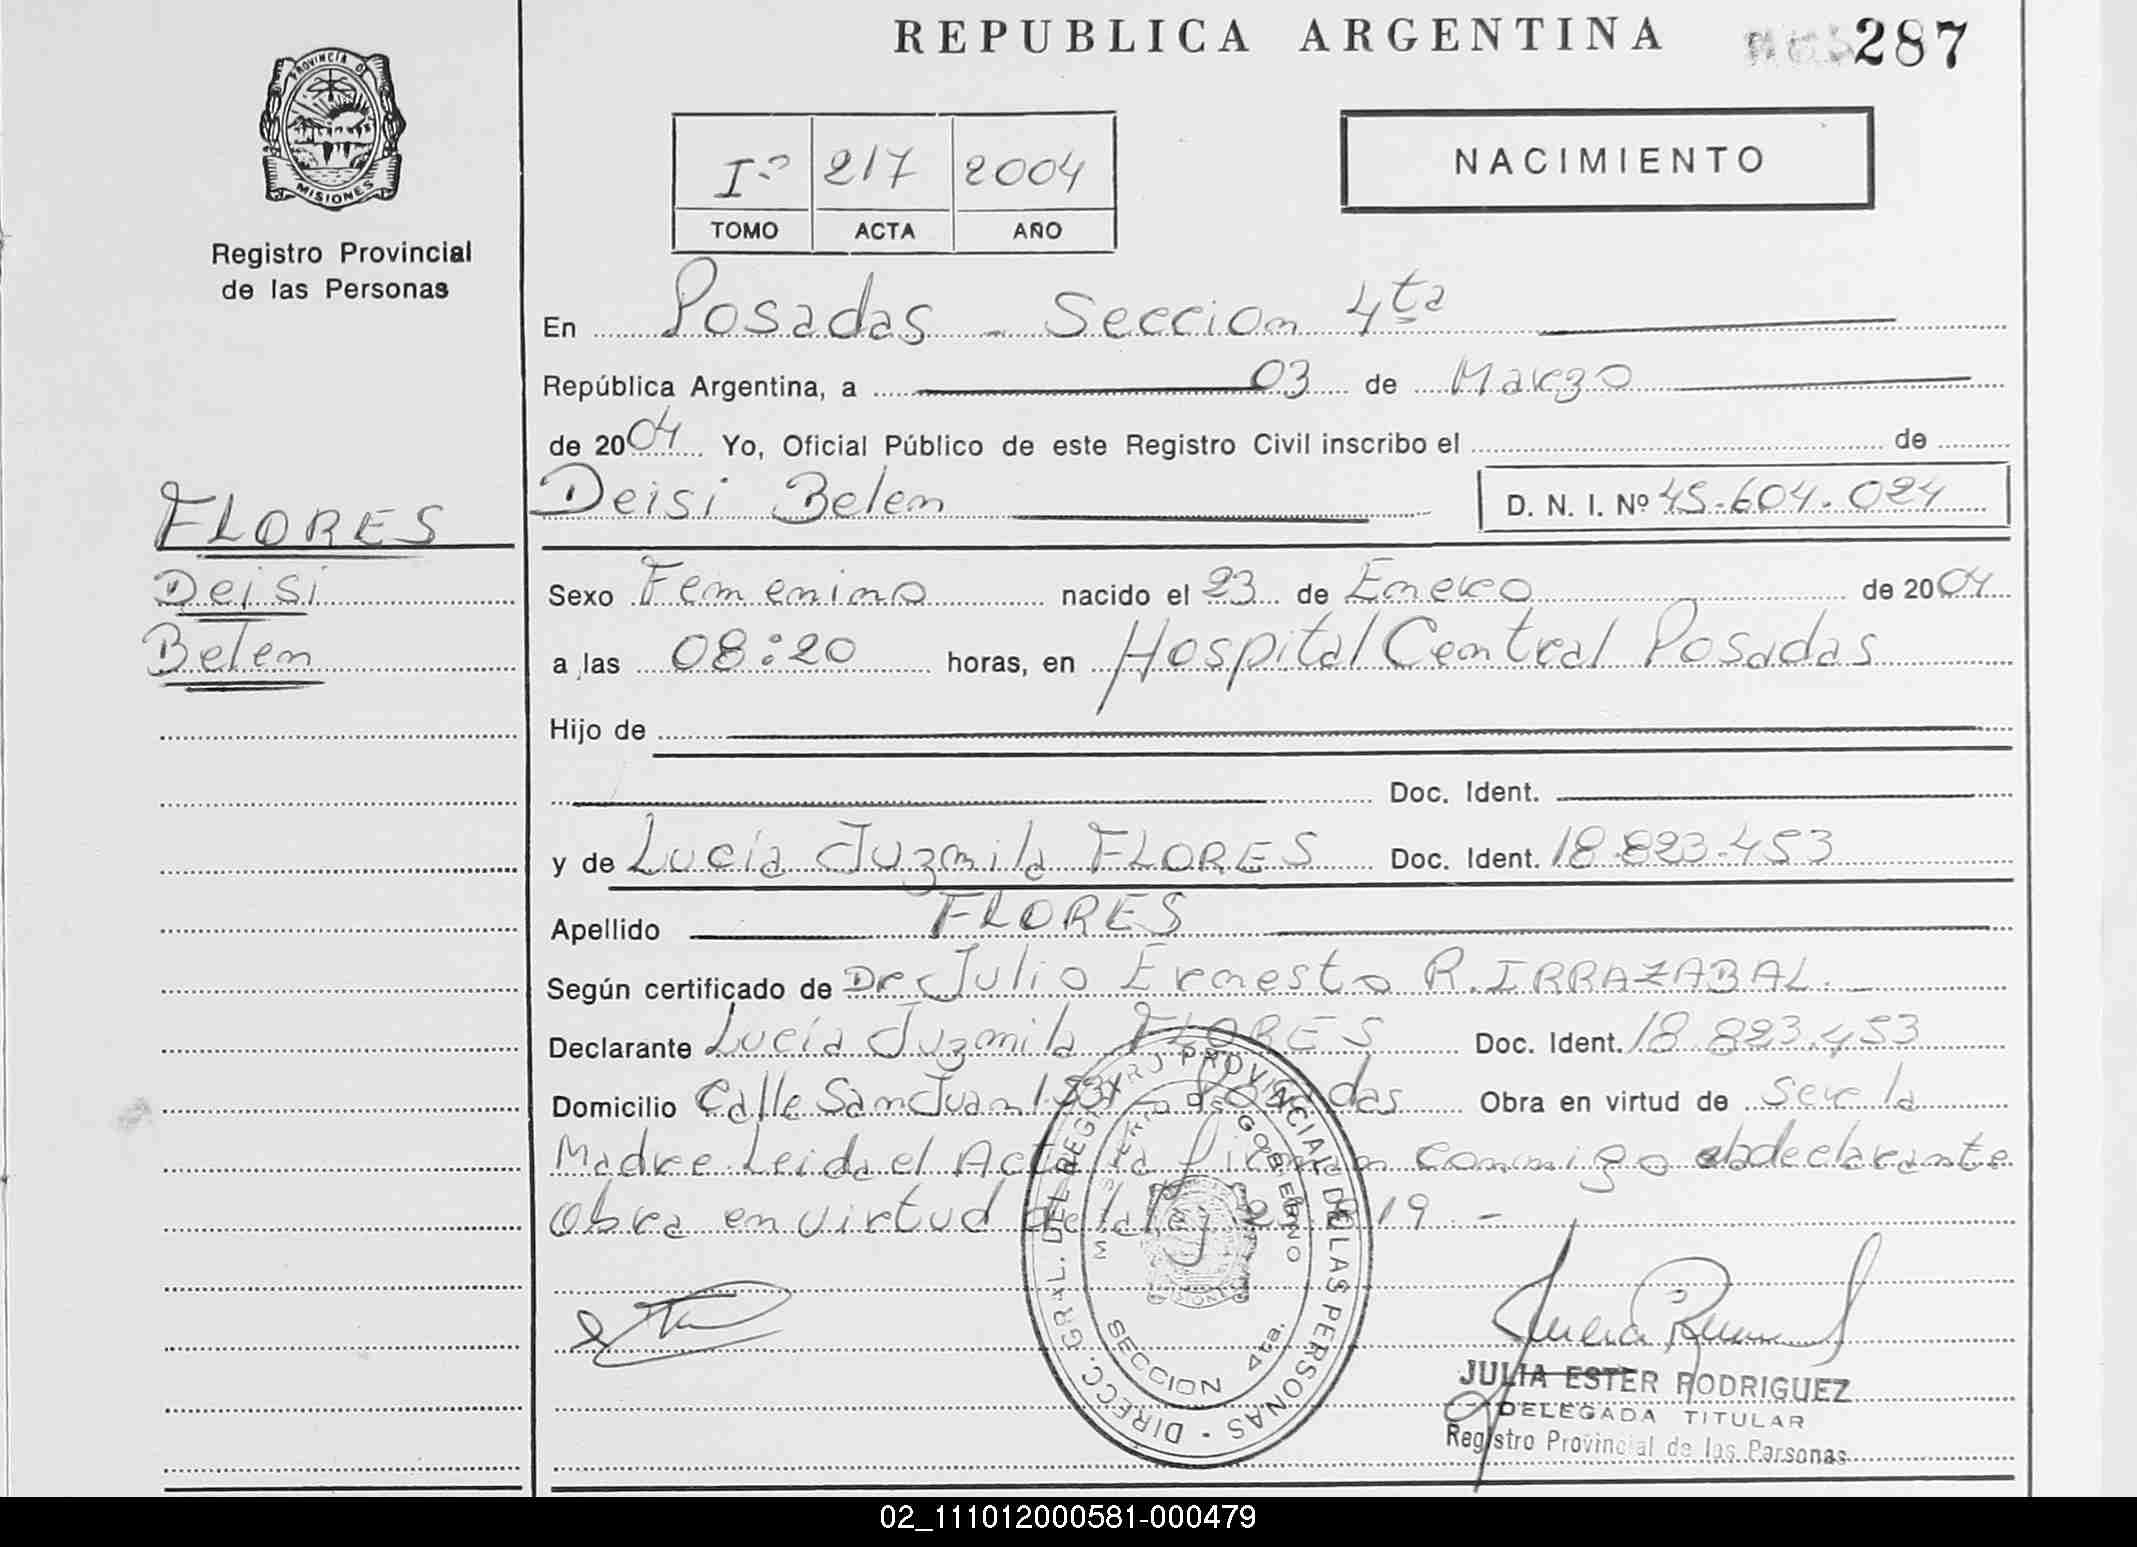 REPUBLICA ARGENTINA
287
PROVINCIA DE
MISIONES
Registro Provincial
de las Personas
I° 217 2004
TOMO ACTA AÑO
NACIMIENTO
En Posadas - Seccion 4ta
República Argentina, a 03 de Marzo
de 2004 Yo, Oficial Público de este Registro Civil inscribo el de
Deisi Belen D. N. I. Nº 45.604.024
FLORES
Deisi
Belen
Sexo Femenino nacido el 23 de Enero de 2004
a las 08:20 horas, en Hospital Central Posadas
Hijo de
Doc. Ident.
y de Lucía Juzmila FLORES Doc. Ident. 18.823.453
Apellido FLORES
Según certificado de Dr Julio Ernesto R. IRRAZABAL.
Declarante Lucía Juzmila FLORES Doc. Ident. 18.823.453
Domicilio Calle San Juan Posadas Obra en virtud de Ser la
Madre Leida el Acta la firman conmigo declarante
Obra en virtud de la
DIRECC. GRAL. DEL REGISTRO PROVINCIAL DE LAS PERSONAS
MINISTERIO DE GOBIERNO
MISIONES
SECCION 4ta.
JULIA ESTER RODRIGUEZ
DELEGADA TITULAR
Registro Provincial de las Personas
02_111012000581-000479